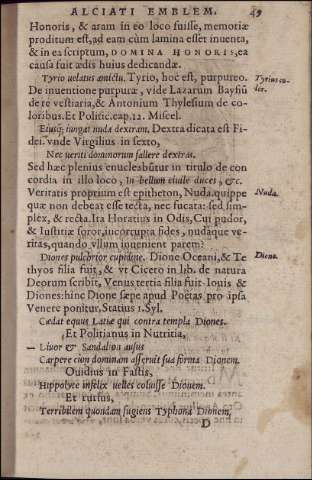 ALCIATI EMBLEM. 49
Honoris, & aram in eo loco fuisse, memoriæ
proditum est, ad eam cùm lamina esset inuenta,
& in ea scriptum, DOMINA HONORIS, ea
causa fuit ædis huius dedicandæ.
Tyrio uelatus amictu. Tyrio, hoc est, purpureo. Tyrius co-
De inuentione purpuræ, vide Lazarum Bayfiũ lor.
de re vestiaria, & Antonium Thylesium de co-
loribus. Et Politic. cap. 12. Miscel.
Eiusq́; iungat nuda dextram. Dextra dicata est Fi-
dei. vnde Virgilius in sexto,
Nec ueriti dominorum fallere dextras.
Sed hæc pleniùs enucleabũtur in titulo de con
cordia in illo loco, In bellum ciuile duces, &c.
Veritatis proprium est epitheton, Nuda. quippe Nuda.
quæ non debeat esse tecta, nec fucata: sed sim-
plex, & recta. Ita Horatius in Odis, Cui pudor,
& Iustitiæ soror, incorrupta fides, nudaque ve-
ritas, quando vllum inuenient parem?
Diones pulchrior cupidine. Dione Oceani, & Te Dione.
thyos filia fuit, & vt Cicero in lib. de natura
Deorum scribit, Venus tertia filia fuit Iouis &
Diones: hinc Dione sæpe apud Poëtas pro ipsa
Venere ponitur, Statius 1. Syl.
Cædat equus Latiæ qui contra templa Diones.
Et Politianus in Nutritia,
— Liuor & Sandalio ausus
Carpere cùm dominam asseruit sua forma Dionem.
Ouidius in Fastis,
Hippolyte infelix uelles coluisse Dionem.
Et rursus,
Terribilem quondam fugiens Typhona Dionem,
D